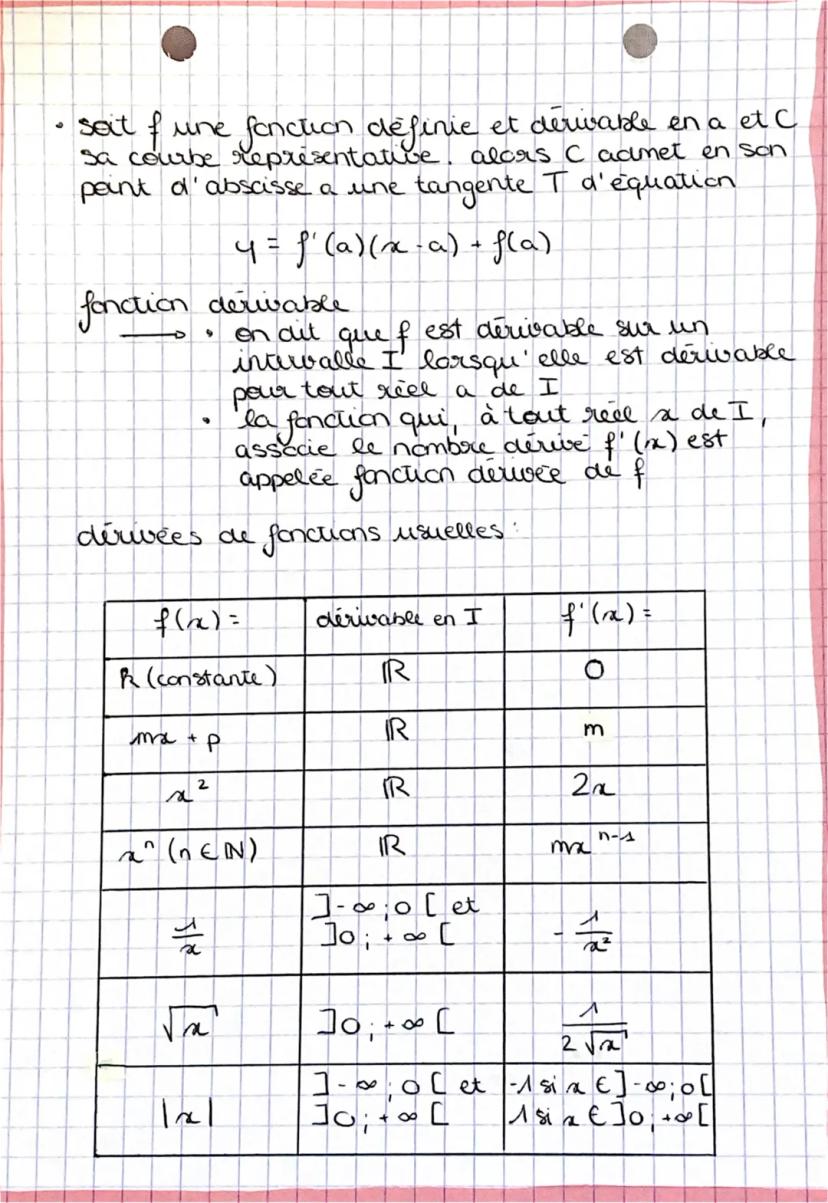 • soit f une fonction définie et dérivable en a et C
sa courbe représentative. alors C admet en son
point d'abscisse a une tangente T d'équation
y = f'(a)(x - a) + f(a)
fonction dérivable
→ • on dit que f est dérivable sur un
intervalle I lorsqu'elle est dérivable
pour tout réel a de I
• la fonction qui, à tout réel x de I,
associe le nombre dérivé f'(x) est
appelée fonction dérivée de f
dérivées de fonctions usuelles :
f(x) = | dérivable en I | f'(x) =
k (constante) | ℝ | 0
mx + p | ℝ | m
x² | ℝ | 2x
xⁿ (n ∈ ℕ) | ℝ | mxⁿ⁻¹
1/x | ]-∞ ; 0 [ et ]0 ; +∞ [ | - 1/x²
√x | ]0 ; +∞ [ | 1/(2√x)
|x| | ]-∞ ; 0 [ et ]0 ; +∞ [ | -1 si x ∈ ]-∞ ; 0[ 1 si x ∈ ]0 ; +∞[